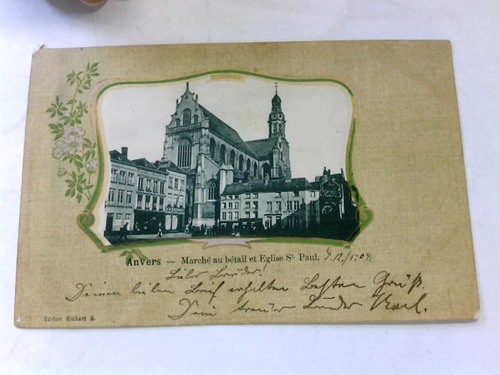 Anvers — Marché au bétail et Eglise St Paul.
Lieber Bruder!
Deinen lieben Brief erhalten Besten Gruß.
Dein treuer Bruder Karl.
Edition